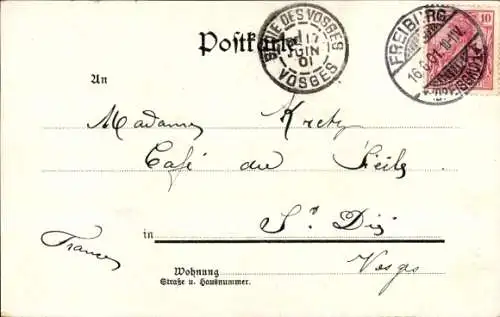 Postkarte
ST DIE DES VOSGES
17
JUIN
01
VOSGES
FREIBURG
16.6.01
10
An
Madame Kretz
Café du
St Dié
France
in
Vosges
Wohnung
Straße u. Hausnummer.